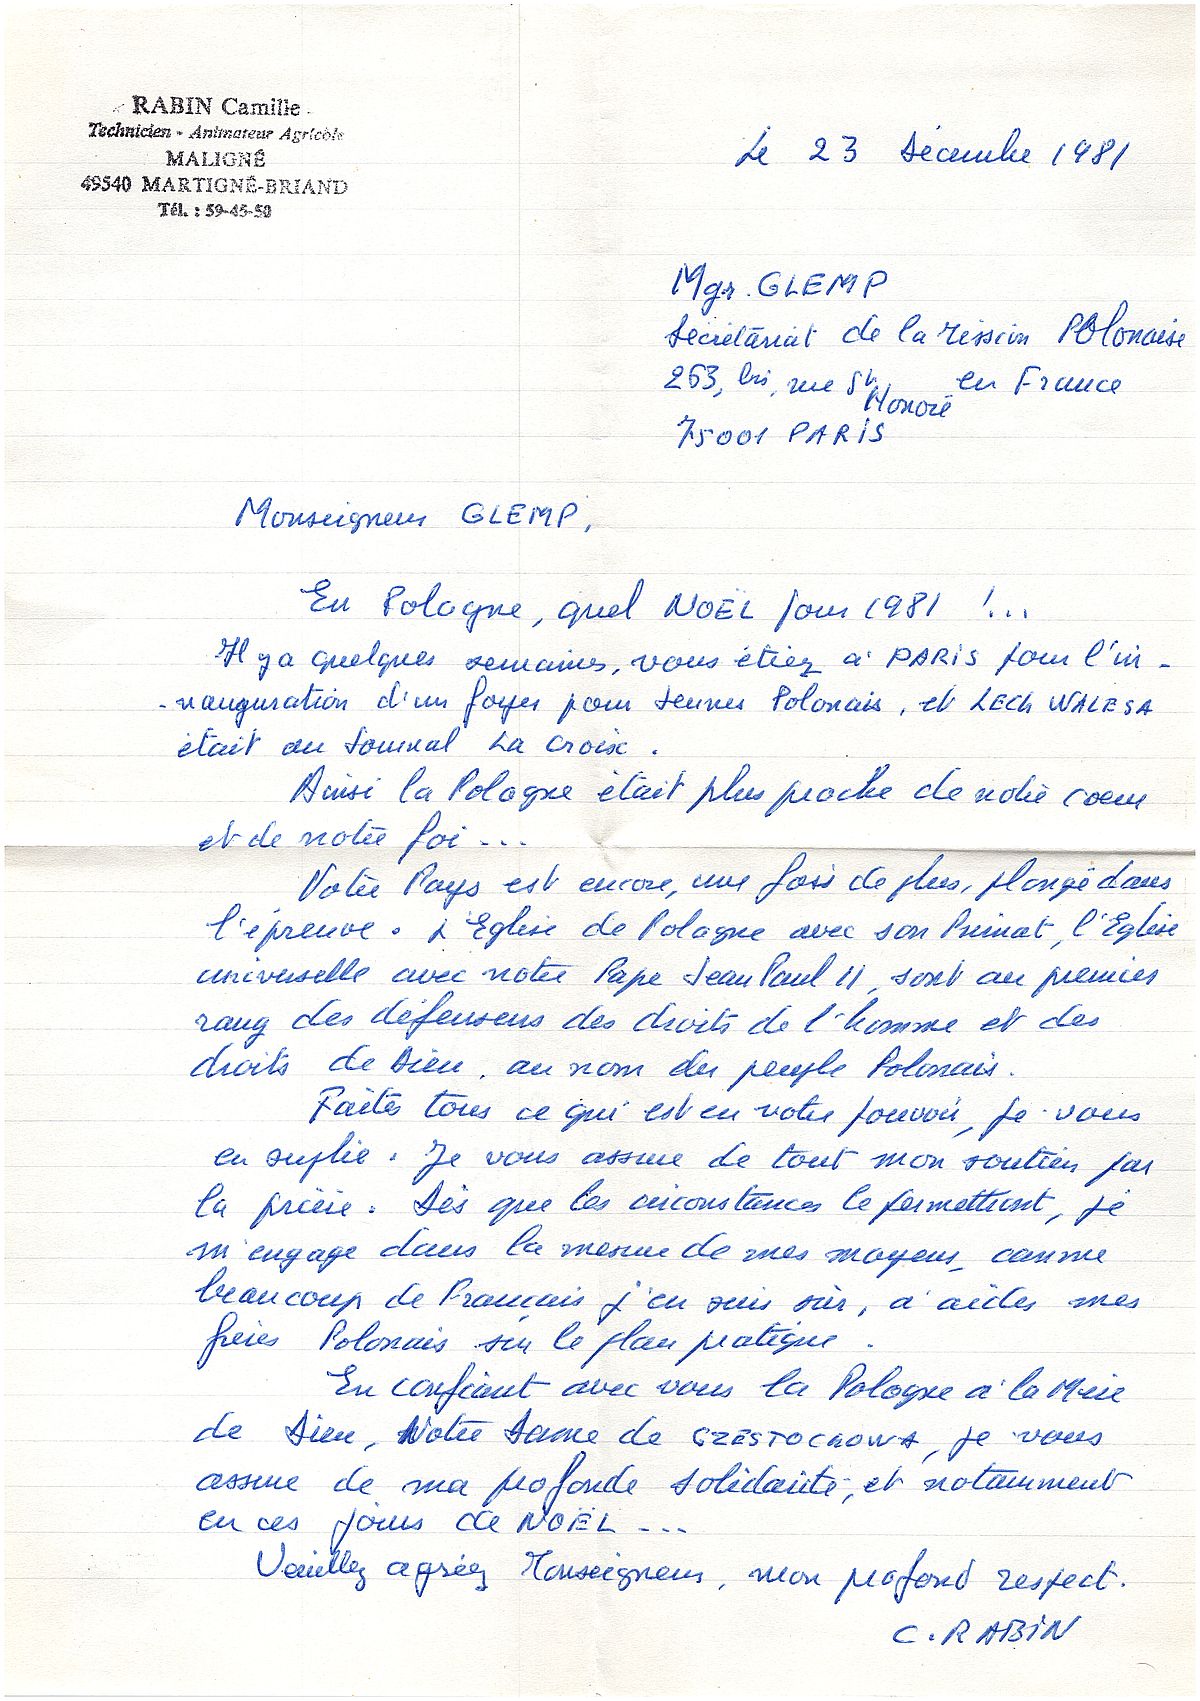 RABIN Camille
Technicien - Animateur Agricole
MALIGNÉ
49540 MARTIGNÉ-BRIAND
Tél. : 59-45-50
Le 23 Décembre 1981
Mgr. GLEMP
Secrétariat de la Mission POlonaise
263, bis, rue St Honoré en France
75001 PARIS
Monseigneur GLEMP,
En Pologne, quel NOËL pour 1981 !...
Il y a quelques semaines, vous étiez à PARIS pour l'in-
-nauguration d'un foyer pour Jeunes Polonais, et LECH WALESA
était au Journal La Croix.
Ainsi la Pologne était plus proche de notre coeur
et de notre foi...
Votre Pays est encore, une fois de plus, plongé dans
l'épreuve. L'Eglise de Pologne avec son Primat, l'Eglise
universelle avec notre Pape Jean Paul II, sont au premier
rang des défenseurs des droits de l'homme et des
droits de Dieu, au nom du peuple Polonais.
Faites tous ce qui est en votre pouvoir, je vous
en suplie. Je vous assure de tout mon soutien par
la prière. Dès que les circonstances le permettront, je
m'engage dans la mesure de mes moyens, comme
beaucoup de Français j'en suis sûr, à aider mes
frères Polonais sur le plan pratique.
En confiant avec vous la Pologne à la Mère
de Dieu, Notre Dame de CZESTOCHOWA, je vous
assure de ma profonde solidarité, et notamment
en ces jours de NOËL ---
Veuillez agréez Monseigneur, mon profond respect.
C. RABIN